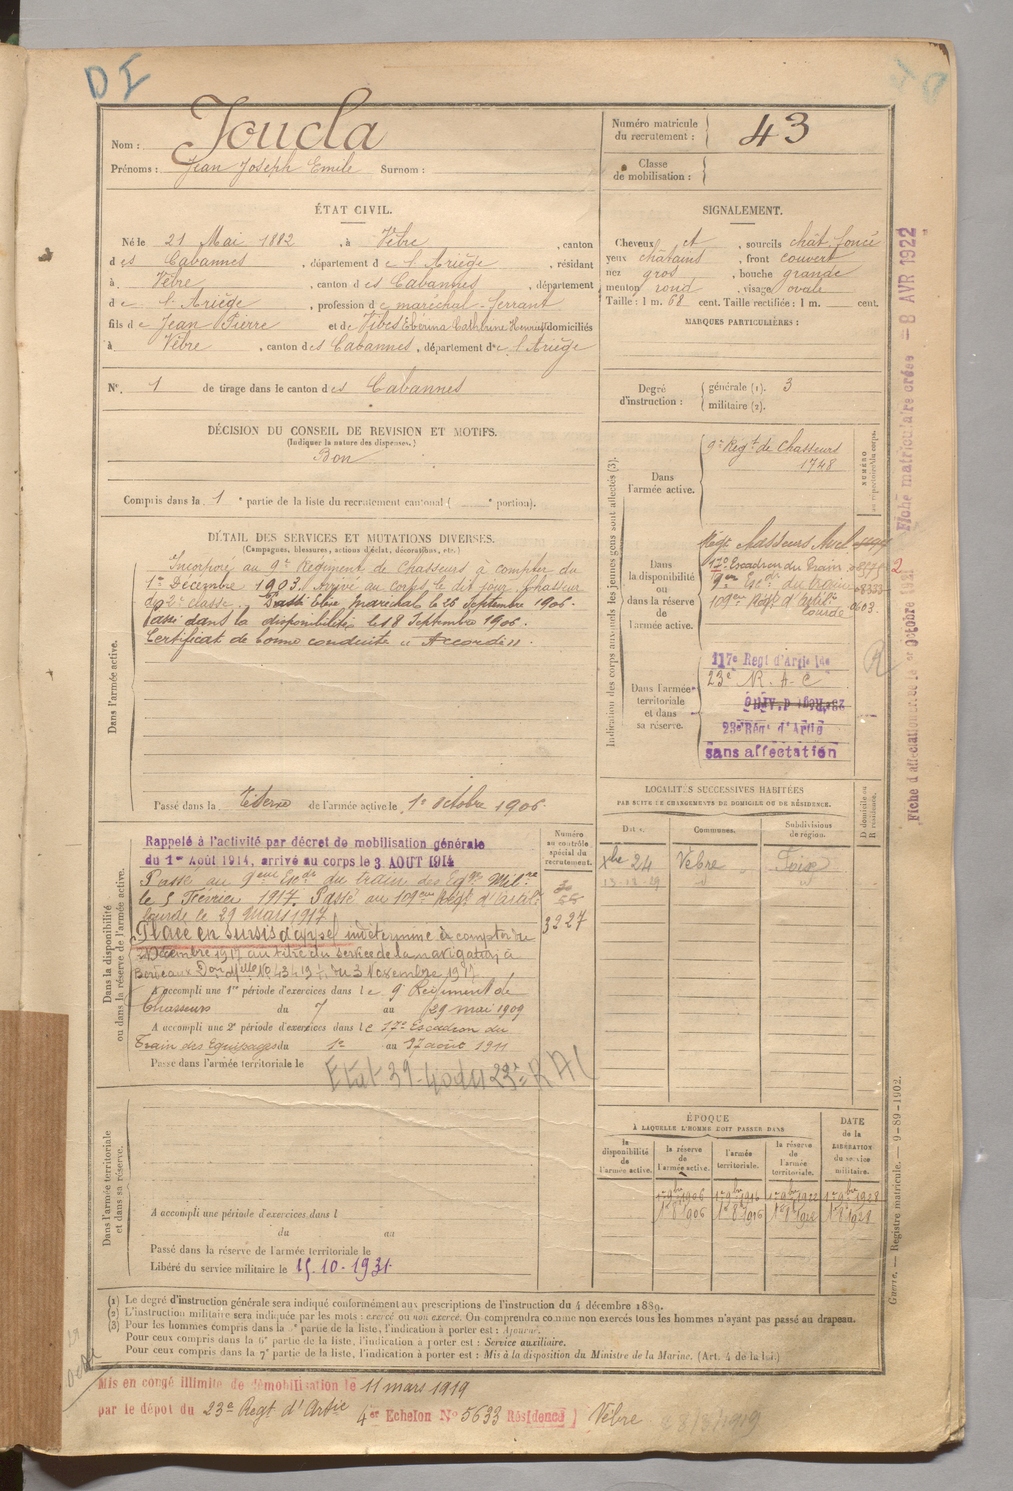 DI
Nom : Joucla
Prénoms : Jean Joseph Emile Surnom :
Numéro matricule du recrutement : 43
Classe de mobilisation :
ÉTAT CIVIL.
Né le 21 Mai 1882, à Vèbre, canton
des Cabannes, département de l'Ariège, résidant
à Vèbre, canton des Cabannes, département
de l'Ariège, profession de maréchal-ferrant
fils de Jean Pierre et de Vibes Catherine domiciliés
à Vèbre, canton des Cabannes, département de l'Ariège
N° 1 de tirage dans le canton des Cabannes
SIGNALEMENT.
Cheveux et, sourcils chât. foncé
yeux châtains, front couvert
nez gros, bouche grande
menton rond, visage ovale
Taille : 1 m. 68 cent. Taille rectifiée : 1 m. cent.
MARQUES PARTICULIÈRES :
Degré d'instruction :
générale (1). 3
militaire (2).
DÉCISION DU CONSEIL DE REVISION ET MOTIFS.
(Indiquer la nature des dispenses.)
Bon
Compris dans la 1e partie de la liste du recrutement cantonal ( e portion).
DÉTAIL DES SERVICES ET MUTATIONS DIVERSES.
(Campagnes, blessures, actions d'éclat, décorations, etc.)
Dans l'armée active.
Incorporé au 9e Régiment de Chasseurs à compter du
1er Décembre 1903. Arrivé au corps le dit jour, Chasseur
de 2e classe. Passé Elève Maréchal le 26 Septembre 1906.
Passé dans la disponibilité le 18 Septembre 1906.
Certificat de bonne conduite "Accordé".
Passé dans la réserve de l'armée active le 1er octobre 1906.
Indication des corps auxquels les jeunes gens sont affectés (3).
Dans l'armée active.
9e Régt de Chasseurs
1748
Dans la disponibilité ou dans la réserve de l'armée active.
Régt Chasseurs
17e Escadron du Train
9ème Esc. du train
109ème Régt d'Artillie Lourde
Dans l'armée territoriale et dans sa réserve.
117e Régt d'Artie lde
23e R.A.C
23e Régt d'Artie
sans affectation
Fiche matriculaire créée - 8 AVR 1922
LOCALITÉS SUCCESSIVES HABITÉES
PAR SUITE DE CHANGEMENTS DE DOMICILE OU DE RÉSIDENCE.
Dates. Communes. Subdivisions de région. D domicile ou R résidence.
Xbre 24 Vèbre Foix
13-12-29 " "
Dans la disponibilité ou dans la réserve de l'armée active.
Numéro au contrôle spécial du recrutement.
3227
Rappelé à l'activité par décret de mobilisation générale
du 1er Août 1914, arrivé au corps le 3 AOUT 1914
Passé au 9ème Escdr du train des Eqges Milres
le 5 Février 1917. Passé au 109ème Régt d'Artillie
lourde le 29 Mars 1917
Placé en sursis d'appel indéterminé à compter du
Décembre 1917 au titre du service de la navigation à
Bordeaux du 3 Novembre 1917
A accompli une 1re période d'exercices dans le 9e Régiment de
Chasseurs du 7 au 29 mai 1909
A accompli une 2e période d'exercices dans le 17e Escadron du
Train des Equipages du 1er au août 1911
Passé dans l'armée territoriale le
Etat 39-40 du 23e RAC
Dans l'armée territoriale et dans sa réserve.
A accompli une période d'exercices dans l
du au
Passé dans la réserve de l'armée territoriale le
Libéré du service militaire le 15.10.1931
ÉPOQUE
À LAQUELLE L'HOMME DOIT PASSER DANS
la disponibilité de l'armée active. la réserve de l'armée active. l'armée territoriale. la réserve de l'armée territoriale.
DATE de la LIBÉRATION du service militaire.
1er 9bre 1906 1er 9bre 1916 1er 9bre 1922 1er 9bre 1928
1er 8bre 1906 1er 8bre 1916 1er 8bre 1922 1er 8bre 1928
Guerre. — Registre matricule. — 9-89-1902.
(1) Le degré d'instruction générale sera indiqué conformément aux prescriptions de l'instruction du 4 décembre 1889.
(2) L'instruction militaire sera indiquée par les mots : exercé ou non exercé. On comprendra comme non exercés tous les hommes n'ayant pas passé au drapeau.
(3) Pour les hommes compris dans la e partie de la liste, l'indication à porter est : Ajourné.
Pour ceux compris dans la 6e partie de la liste, l'indication à porter est : Service auxiliaire.
Pour ceux compris dans la 7e partie de la liste, l'indication à porter est : Mis à la disposition du Ministre de la Marine. (Art. 4 de la loi.)
Mis en congé illimité de démobilisation le 11 mars 1919
par le dépôt du 23e Regt d'Artie 4er Echelon N° 5633 Résidence ) Vèbre
28/3/1919